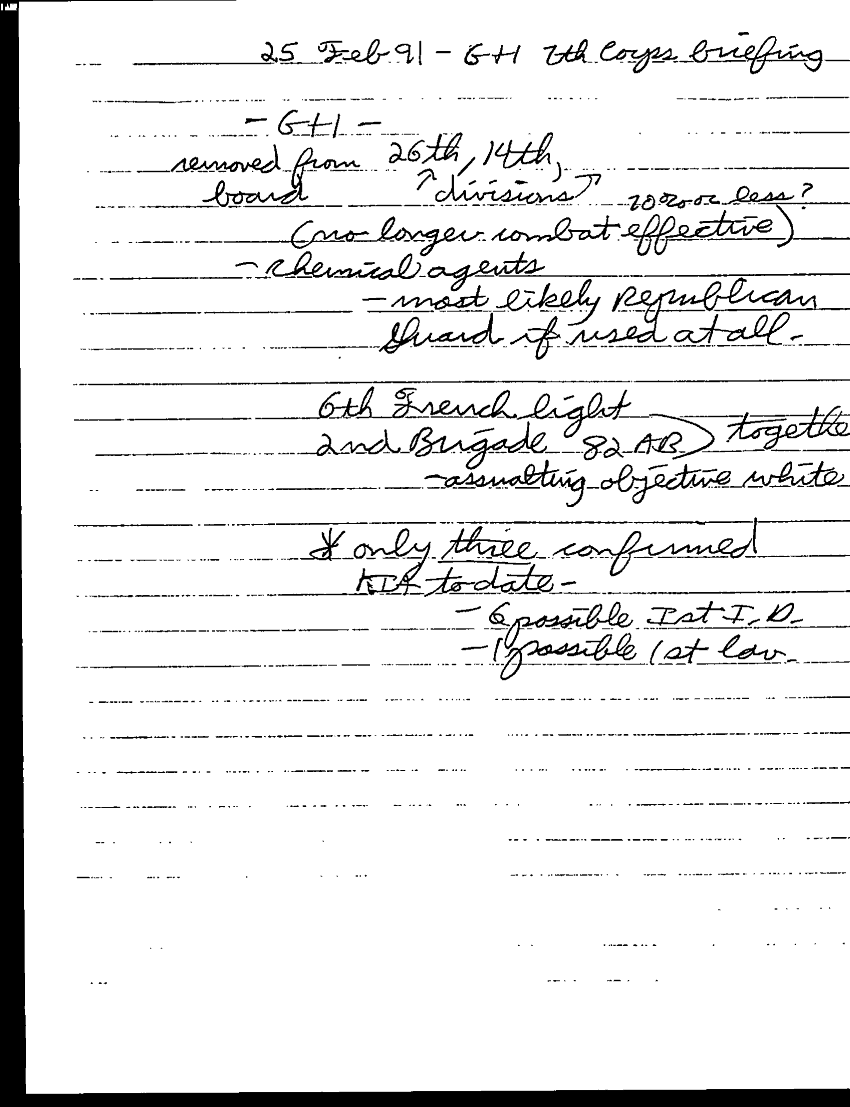 25 Feb 91 - G+1 7th Corps briefing
- G+1 -
removed from 26th, 14th,
board ↑ divisions ↑ or less?
(no longer combat effective)
- chemical agents
- most likely Republican
Guard if used at all -
6th French light
2nd Brigade 82 AB) togethe
- assualting objective white
* only three confirmed
KIA to date -
- 6 possible Ist I.D.
- 1 possible 1st cav.